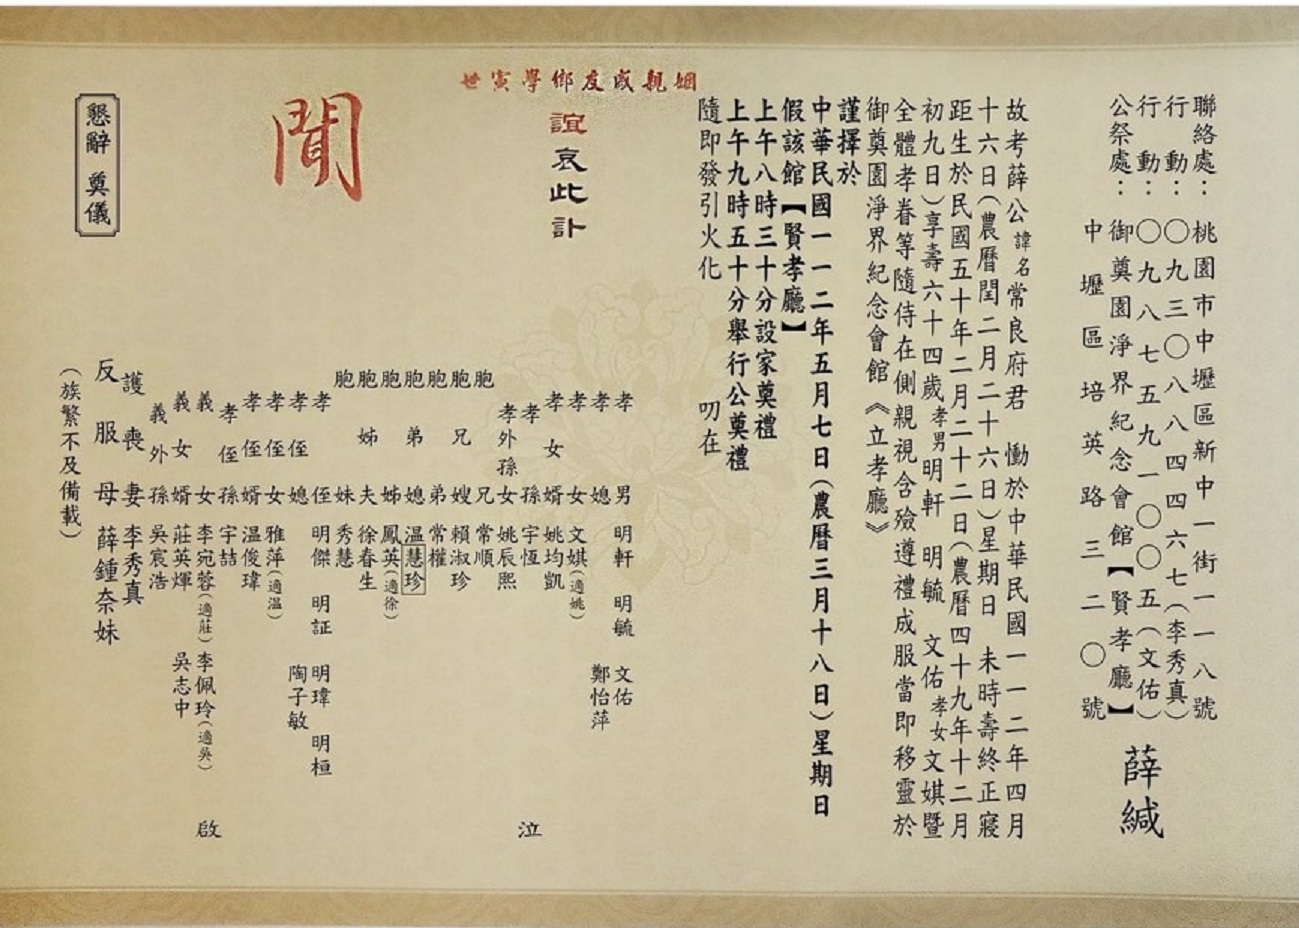 聯絡處：桃園市中壢區新中一街一一八號
行動：〇九三〇八八四四六七（李秀真）
行動：〇九八七五九一〇〇五（文佑）
公祭處：御奠園淨界紀念會館【賢孝廳】
中壢區培英路三二〇號
薛緘
故考薛公諱名常良府君　慟於中華民國一一二年四月
十六日（農曆閏二月二十六日）星期日　未時壽終正寢
距生於民國五十年二月二十二日（農曆四十九年十二月
初九日）享壽六十四歲孝男明軒　明毓　文佑孝女文娸暨
全體孝眷等隨侍在側親視含殮遵禮成服當即移靈於
御奠園淨界紀念會館《立孝廳》
謹擇於
中華民國一一二年五月七日（農曆三月十八日）星期日
假該館【賢孝廳】
上午八時三十分設家奠禮
上午九時五十分舉行公奠禮
隨即發引火化　叨在
姻親戚友鄉學寅世
誼哀此訃
聞
孝男　明軒　明毓　文佑
孝媳　鄭怡萍
孝女　文娸（適姚）
孝女婿　姚均凱
孝孫　宇恆
孝外孫女　姚辰熙
胞兄　常順
胞兄嫂　賴淑珍
胞弟　常權
胞弟媳　温慧珍
胞姊　鳳英（適徐）
胞姊夫　徐春生
胞妹　秀慧
孝侄　明傑　明証　明瑋　明桓
孝侄媳　陶子敏
孝侄女　雅萍（適温）
孝侄婿　温俊瑋
孝侄孫　宇喆
義女　李宛蓉（適莊）李佩玲（適吳）
義女婿　莊英煇　吳志中
義外孫　吳宸浩
護喪妻　李秀真
反服母　薛鍾奈妹
（族繁不及備載）
泣
啟
懇辭　奠儀